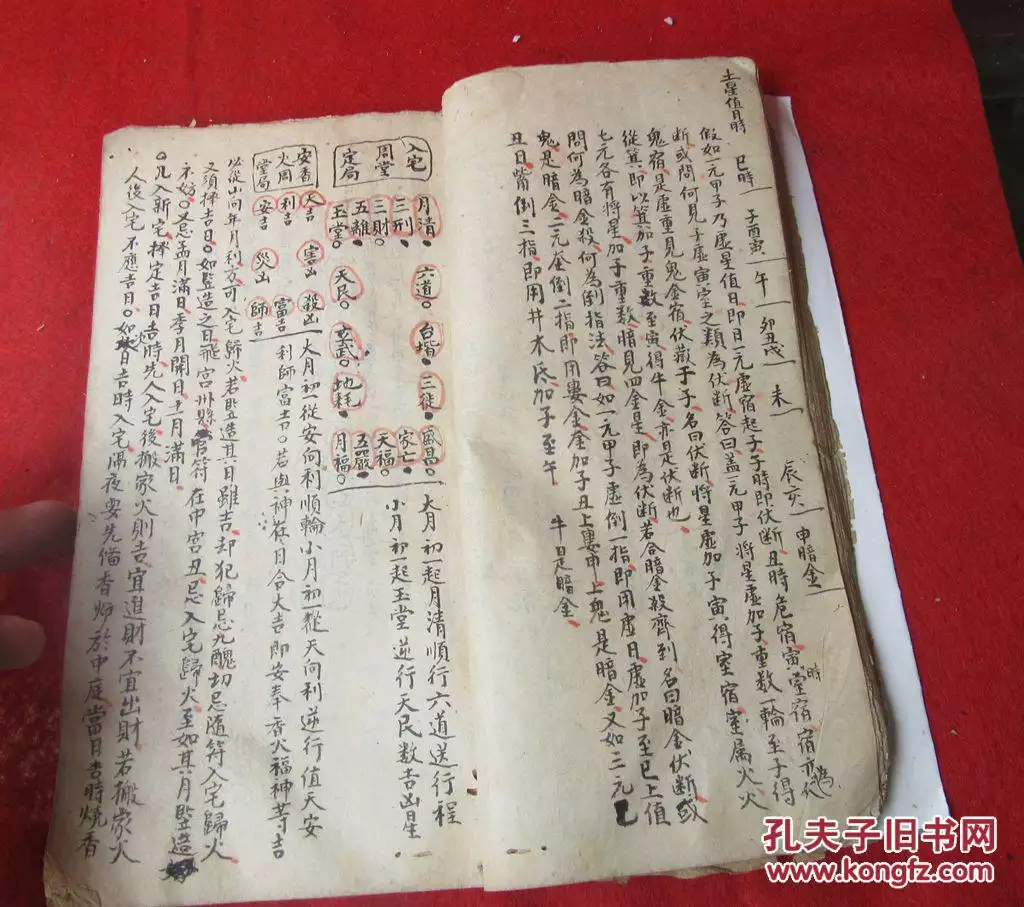 土星值日時 巳時 子酉寅 午 卯丑戌 未 辰亥 申暗金
假如一元甲子乃虛星值日即日一元虛宿起子子時即伏斷丑時危宿寅時室宿
断或問何見子虛寅室之類為伏斷答曰盖一元甲子將星虛加子重数一輪至子得
鬼宿是虛重見鬼金宿伏藏于子名曰伏斷將星虛加子寅得室宿室属火火
從箕即以箕加子重數至寅得牛金亦是伏斷也
七元各有將星加子重数暗見四金星即為伏斷若合暗金殺齊到名曰暗金伏斷或
問何為暗金殺何為倒指法答曰如一元甲子虛倒一指即用虛日虛加子至巳上值
鬼是暗金二元奎倒二指即用婁金奎加子丑上婁申上鬼是暗金又如三元
丑日觜倒三指即用井木氐加子至午 牛是暗金
入宅周堂定局
月清 六道 台堦 三徒 盛昌
三刑 家亡
三財 天福
五離
玉堂 天民 玄武 地耗 月福
大月初一起月清順行六道送行程
小月初一起玉堂逆行天民数吉凶星
安香火周堂局
天吉 害凶 殺凶
利吉 富吉
安吉 災凶 師吉
大月初一從安向利順輪小月初一從天向利逆行值天安
利師富吉若與神在日合大吉即安奉香火福神等吉
必從山向年月利方可入宅歸火若竪造其日雖吉却犯歸忌九醜切忌隨符入宅歸火
又須擇吉日如竪造之日飛宮州縣官符在中宮丑忌入宅歸火至如其月竪造
不妨又忌孟月滿日季月開日十一月滿日
凡入新宅擇定吉日吉時先人入宅後搬家火則吉宜進財不宜出財若搬家火
人後入宅不應吉日如吉時入宅隔夜要先俻香炉於中庭當日吉時燒香
孔夫子旧书网
www.kongfz.com